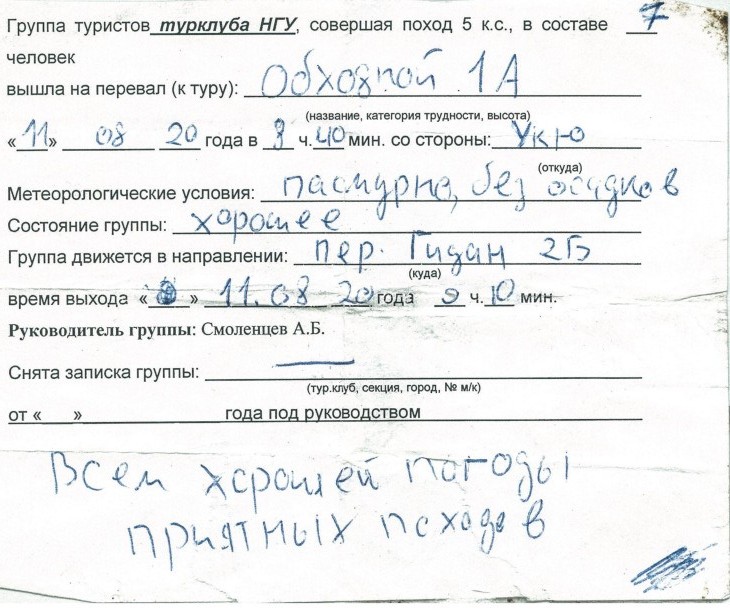 Группа туристов турклуба НГУ, совершая поход 5 к.с., в составе 7
человек
вышла на перевал (к туру): Обходной 1А
(название, категория трудности, высота)
«11» 08 20 года в 8 ч. 40 мин. со стороны: Укю
(откуда)
Метеорологические условия: пасмурно, без осадков
Состояние группы: хорошее
Группа движется в направлении: пер. Гидан 2Б
(куда)
время выхода « » 11.08 20 года 9 ч. 10 мин.
Руководитель группы: Смоленцев А.Б.
Снята записка группы: —
(тур.клуб, секция, город, № м/к)
от « » года под руководством
Всем хорошей погоды
приятных походов